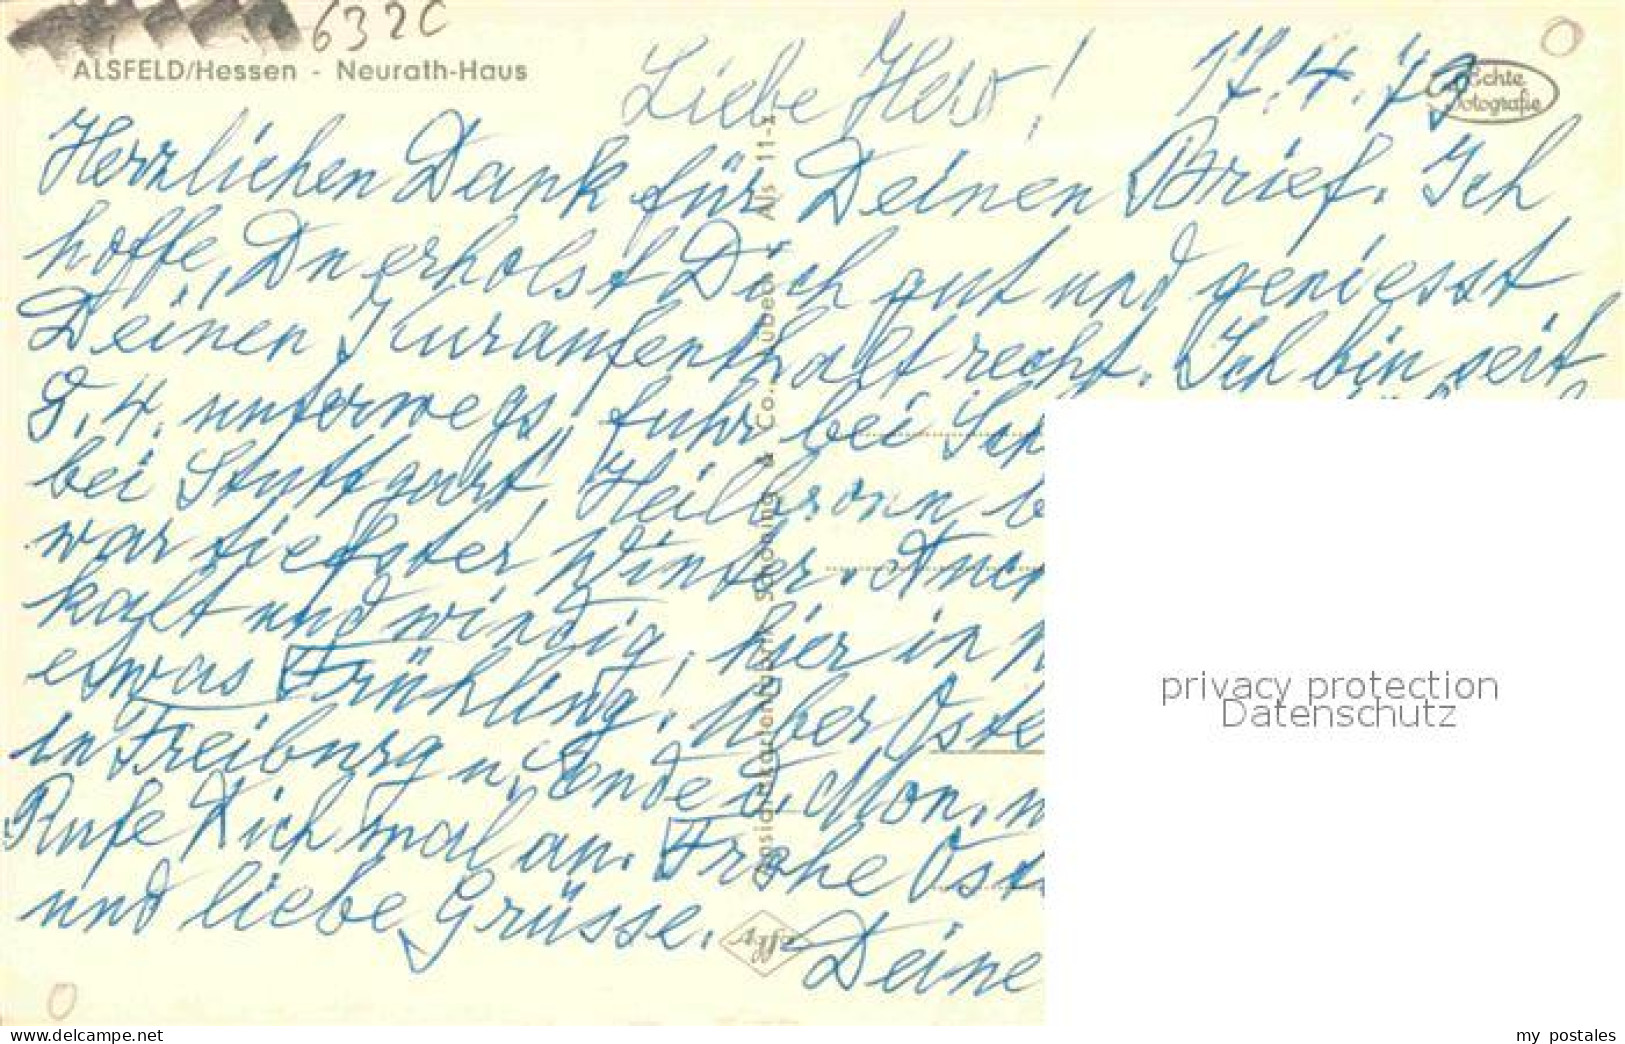 632C
ALSFELD/Hessen - Neurath-Haus
Echte
Fotografie
Liebe Hero! 17.4.73
Herzlichen Dank für Deinen Brief. Ich
hoffe, Du erholst Dich gut und geniesst
Deinen Kuraufenthalt recht. Ich bin seit
9.4. unterwegs, fuhr bei Sch
bei Stuttgart, Heilbronn b
war tiefster Winter. Auch
kalt und windig, hier in
etwas Frühling! Über Oste
in Freiburg u. Ende d. Mon.
Rufe Dich mal an. Frohe Ost
und liebe Grüsse.
Deine
Cosignakartenfabrik Schöning & Co., Lübeck Als 11-x
Agfa
privacy protection
Datenschutz
my postales